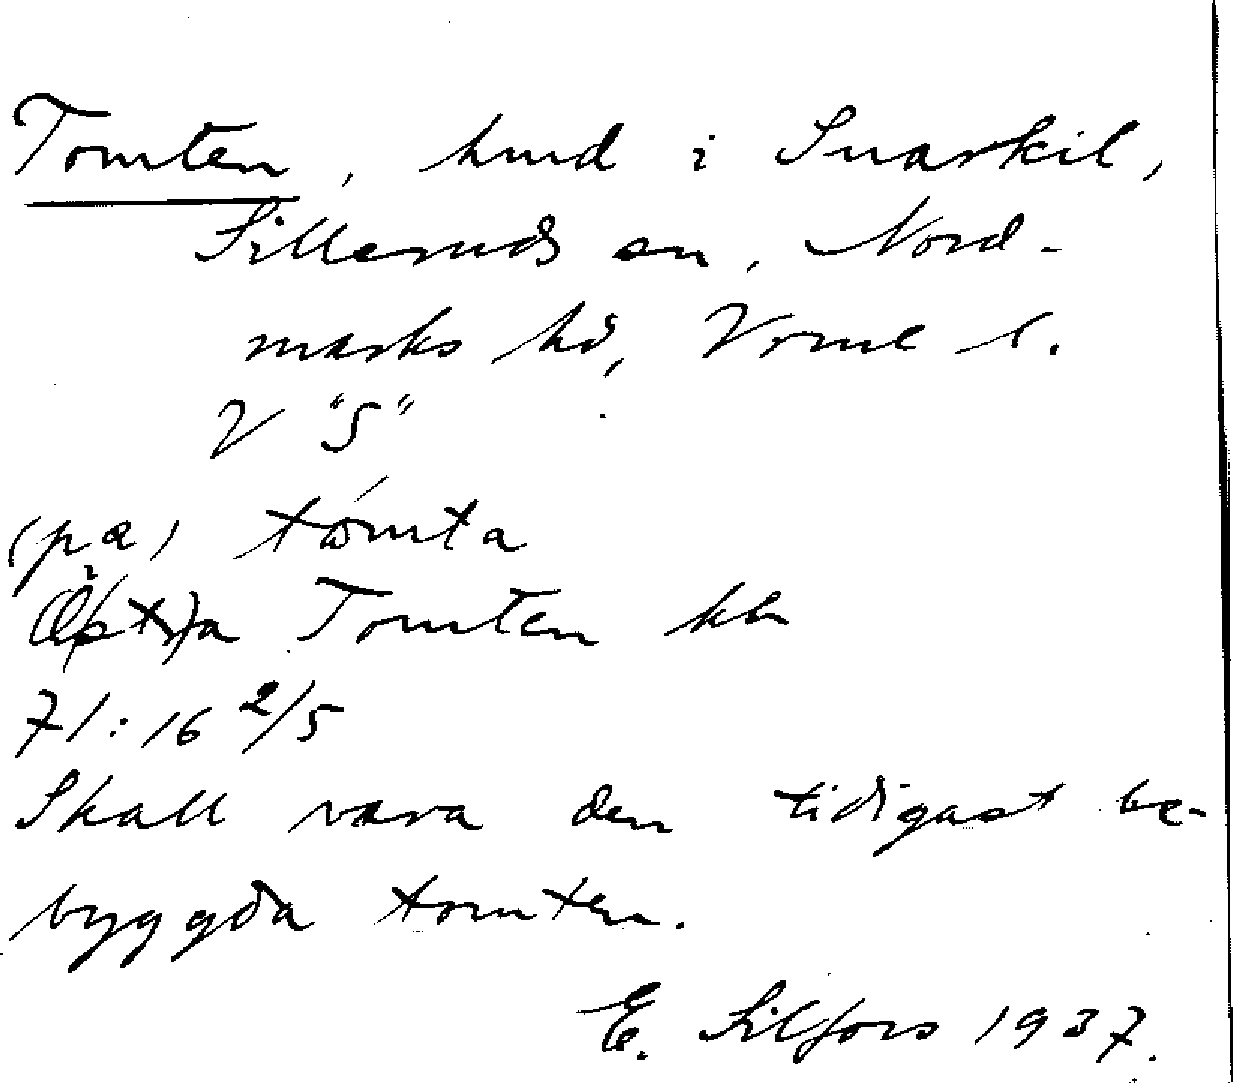 Tomten, hmd i Snarkil,
Silleruds sn, Nord-
marks hd, Vrml l.
V "S"
(på) tömta
Tomten
71:16 2/5
Skall vara den tidigast be-
byggda tomten.
E. Silfors 1937.